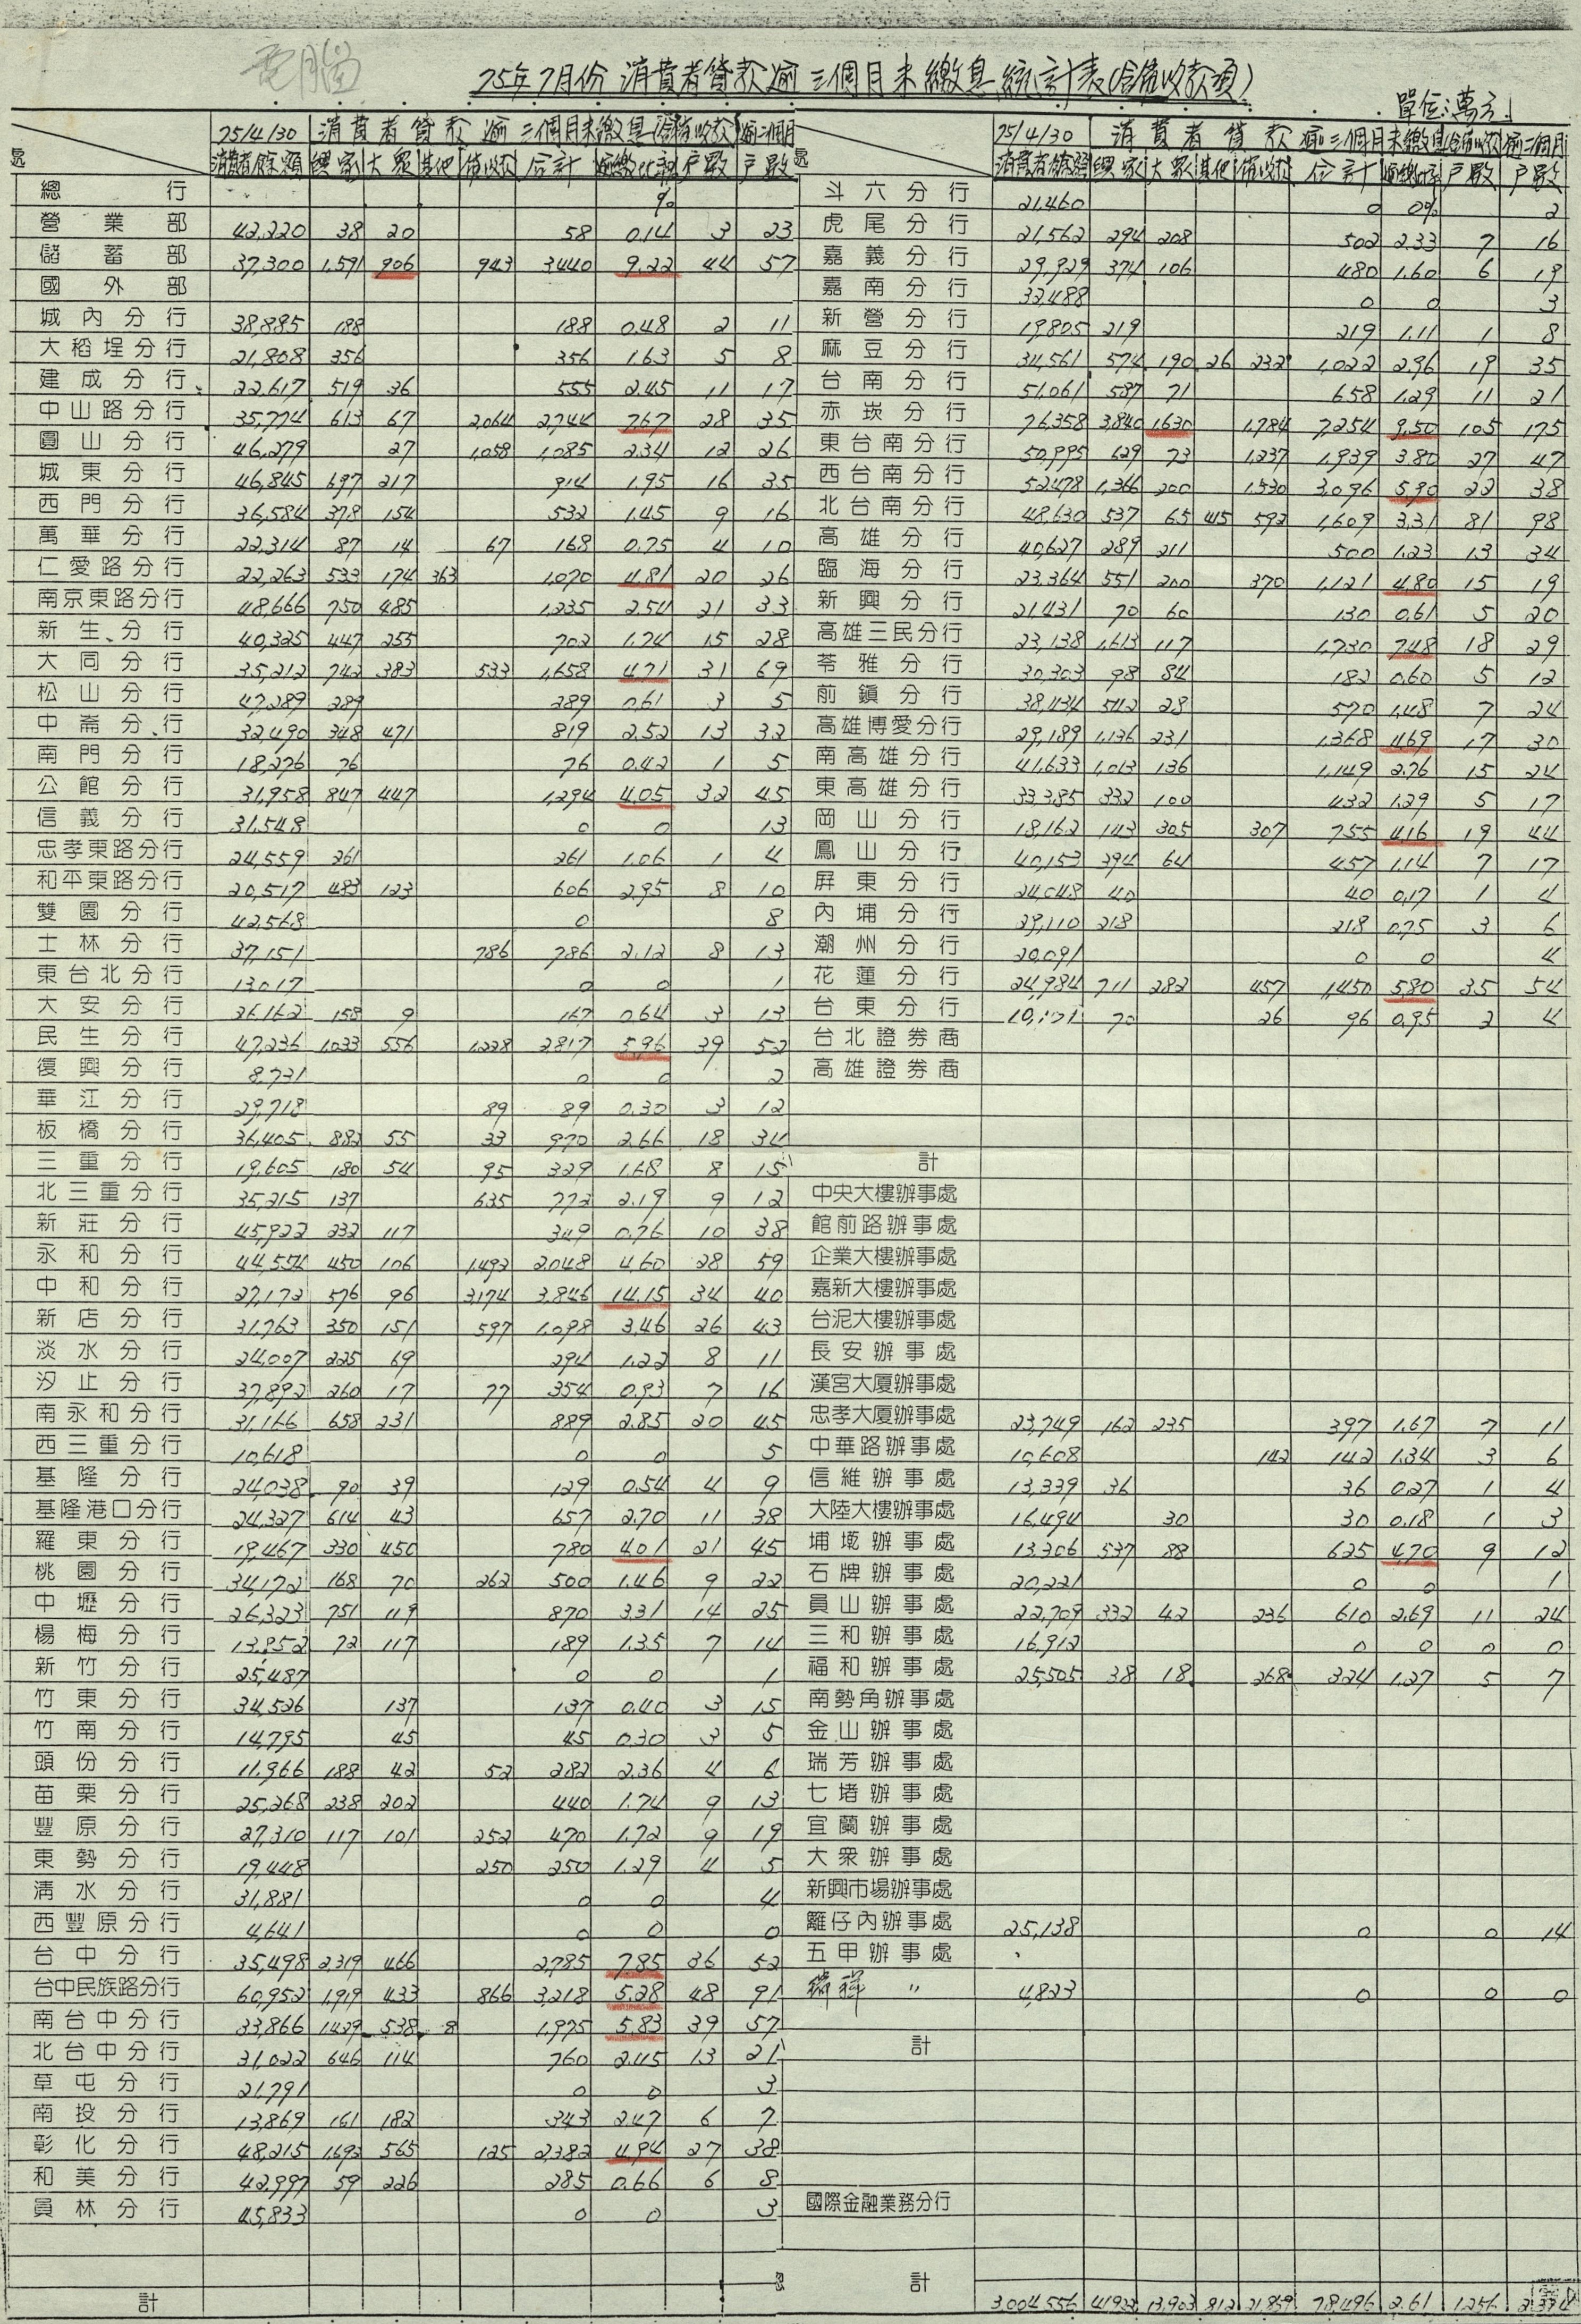 電腦
75年7月份 消費者貸款逾三個月未繳息統計表(含催收款項)
單位:萬元
處 75/4/30 消費者貸款逾三個月未繳息(含催收款) 逾二個月
消費者餘額 興家 大眾 其他 催收款 合計 逾繳比率 戶數 戶數
總行 %
營業部 42,220 38 20 58 0.14 3 23
儲蓄部 37,300 1,591 906 943 3440 9.22 44 57
國外部
城內分行 38,885 188 188 0.48 2 11
大稻埕分行 21,808 356 356 1.63 5 8
建成分行 22,617 519 36 555 2.45 11 17
中山路分行 35,774 613 67 2,064 2,744 7.67 28 35
圓山分行 46,279 27 1,058 1,085 2.34 12 26
城東分行 46,845 697 217 914 1.95 16 35
西門分行 36,584 378 154 532 1.45 9 16
萬華分行 22,314 87 14 67 168 0.75 4 10
仁愛路分行 22,263 533 174 363 1,070 4.81 20 26
南京東路分行 48,666 750 485 1,235 2.54 21 33
新生分行 40,325 447 255 702 1.74 15 28
大同分行 35,212 742 383 533 1,658 4.71 31 69
松山分行 47,289 289 289 0.61 3 5
中崙分行 32,490 348 471 819 2.52 13 32
南門分行 18,276 76 76 0.42 1 5
公館分行 31,958 847 447 1,294 4.05 32 45
信義分行 31,548 0 0 13
忠孝東路分行 24,559 261 261 1.06 1 4
和平東路分行 20,517 483 123 606 2.95 8 10
雙園分行 42,568 0 8
士林分行 37,151 786 786 2.12 8 13
東台北分行 13,017 0 0 1
大安分行 26,162 158 9 167 0.64 3 13
民生分行 47,236 1,033 556 1,228 2,817 5.96 39 52
復興分行 8,731 0 0 2
華江分行 29,718 89 89 0.30 3 12
板橋分行 36,405 882 55 33 970 2.66 18 34
三重分行 19,605 180 54 95 329 1.68 8 15
北三重分行 35,215 137 635 772 2.19 9 12
新莊分行 45,922 232 117 349 0.76 10 38
永和分行 44,554 450 106 1,492 2,048 4.60 28 59
中和分行 27,172 576 96 3,174 3,846 14.15 34 40
新店分行 31,763 350 151 597 1,098 3.46 26 43
淡水分行 24,007 225 69 294 1.22 8 11
汐止分行 37,892 260 17 77 354 0.93 7 16
南永和分行 31,166 658 231 889 2.85 20 45
西三重分行 10,618 0 0 5
基隆分行 24,038 90 39 129 0.54 4 9
基隆港口分行 24,327 614 43 657 2.70 11 38
羅東分行 19,467 330 450 780 4.01 21 45
桃園分行 34,172 168 70 262 500 1.46 9 22
中壢分行 26,323 751 119 870 3.31 14 25
楊梅分行 13,852 72 117 189 1.35 7 14
新竹分行 25,487 0 0 1
竹東分行 34,526 137 137 0.40 3 15
竹南分行 14,795 45 45 0.30 3 5
頭份分行 11,966 188 42 52 282 2.36 4 6
苗栗分行 25,268 238 202 440 1.74 9 13
豐原分行 27,310 117 101 252 470 1.72 9 19
東勢分行 19,448 250 250 1.29 4 5
清水分行 31,881 0 0 4
西豐原分行 4,641 0 0 0
台中分行 35,498 2,319 466 2,785 7.85 36 52
台中民族路分行 60,952 1,919 433 866 3,218 5.28 48 91
南台中分行 33,866 1429 538 8 1,975 5.83 39 57
北台中分行 31,022 646 114 760 2.45 13 21
草屯分行 21,791 0 0 3
南投分行 13,869 161 182 343 2.47 6 7
彰化分行 48,215 1,692 565 125 2,382 4.94 27 38
和美分行 42,997 59 226 285 0.66 6 8
員林分行 45,833 0 0 3
計
處 75/4/30 消費者貸款逾三個月未繳息(含催收款) 逾二個月
消費者餘額 興家 大眾 其他 催收款 合計 逾繳比率 戶數 戶數
斗六分行 21,460 0 0% 2
虎尾分行 21,562 294 208 502 2.33 7 16
嘉義分行 29,929 374 106 480 1.60 6 19
嘉南分行 33,488 0 0 3
新營分行 19,805 219 219 1.11 1 8
麻豆分行 34,561 574 190 26 232 1,022 2.96 19 35
台南分行 51,061 587 71 658 1.29 11 21
赤崁分行 76,358 3,840 1,630 1,784 7,254 9.50 105 175
東台南分行 50,995 629 73 1,237 1,939 3.80 27 47
西台南分行 52,478 1,366 200 1,530 3,096 5.90 22 38
北台南分行 48,630 537 65 415 592 1,609 3.31 81 98
高雄分行 40,627 289 211 500 1.23 13 34
臨海分行 23,364 551 200 370 1,121 4.80 15 19
新興分行 21,431 70 60 130 0.61 5 20
高雄三民分行 23,138 1,613 117 1,730 7.48 18 29
苓雅分行 30,303 98 84 182 0.60 5 12
前鎮分行 38,434 542 28 570 1.48 7 24
高雄博愛分行 29,189 1,136 231 1,368 4.69 17 30
南高雄分行 41,633 1,013 136 1,149 2.76 15 24
東高雄分行 33,385 332 100 432 1.29 5 17
岡山分行 18,162 143 305 307 755 4.16 19 44
鳳山分行 40,153 394 64 457 1.14 7 17
屏東分行 24,048 40 40 0.17 1 4
內埔分行 29,110 218 218 0.75 3 6
潮州分行 20,091 0 0 4
花蓮分行 24,984 711 282 457 1,450 5.80 35 54
台東分行 70 26 96 0.95 2 4
台北證券商
高雄證券商
計
中央大樓辦事處
館前路辦事處
企業大樓辦事處
嘉新大樓辦事處
台泥大樓辦事處
長安辦事處
漢宮大廈辦事處
忠孝大廈辦事處 23,749 162 235 397 1.67 7 11
中華路辦事處 10,608 142 142 1.34 3 6
信維辦事處 13,339 36 36 0.27 1 4
大陸大樓辦事處 16,494 30 30 0.18 1 3
埔墘辦事處 13,306 537 88 625 4.70 9 12
石牌辦事處 20,221 0 0 1
員山辦事處 22,709 332 42 236 610 2.69 11 24
三和辦事處 16,912 0 0 0 0
福和辦事處 25,505 38 18 268 324 1.27 5 7
南勢角辦事處
金山辦事處
瑞芳辦事處
七堵辦事處
宜蘭辦事處
大眾辦事處
新興市場辦事處
籬仔內辦事處 25,138 0 0 14
五甲辦事處
〃 4,823 0 0 0
計
國際金融業務分行
計 3,004,556 41,922 13,903 812 21,859 78,496 2.61 1,256